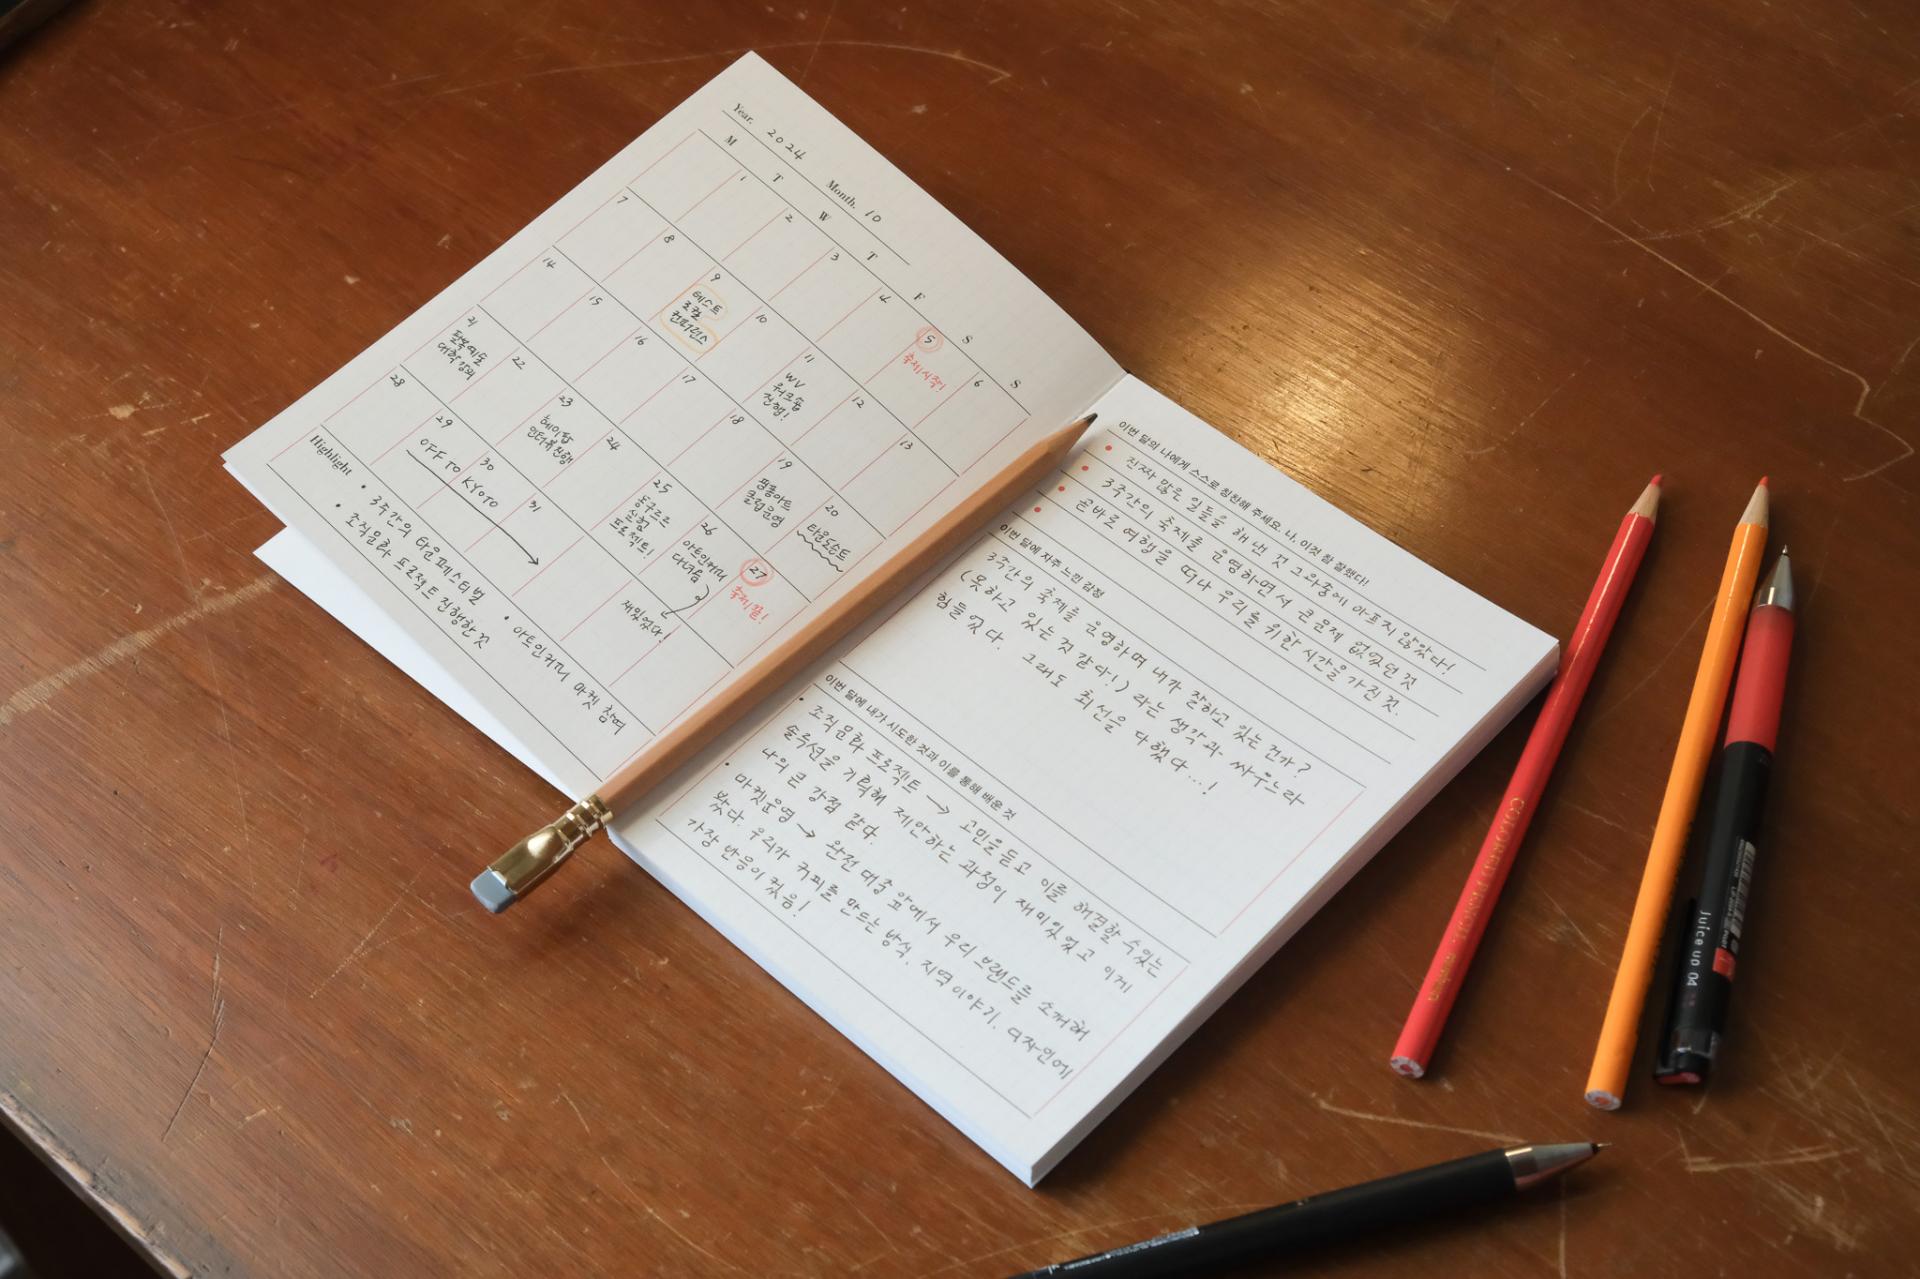 Year. 2024 Month. 10
M T W T F S S
1 2 3 4 5 6
축제시작!
7 8 9 10 11 12 13
베스트
로컬
컨퍼런스
WV
워크숍
진행!
14 15 16 17 18 19 20
클럽운영
21 22 23 24 25 26 27
대학강의
인터뷰진행
동구르르
실험
프로젝트!
아트인커피
다녀옴
재밌었다!
축제끝!
28 29 30 31
OFF TO
KYOTO
Highlight
• 3주간의 타운페스티벌
• 아트인커피 마켓 참여
• 조직문화 프로젝트 진행한 것
이번 달의 나에게 스스로 칭찬해 주세요. 나, 이것 참 잘했다!
진짜 많은 일들을 해낸 것 그와중에 아프지 않았다!
3주간의 축제를 운영하면서 큰 문제 없었던 것
곧바로 여행을 떠나 우리를 위한 시간을 가진 것.
이번 달에 자주 느낀 감정
3주간의 축제를 운영하며 내가 잘하고 있는 건가?
(못하고 있는 것 같다!) 라는 생각과 싸우느라
힘들었다. 그래도 최선을 다했다...!
이번 달에 내가 시도한 것과 이를 통해 배운 것
• 조직문화 프로젝트 → 고민을 듣고 이를 해결할 수 있는
솔루션을 기획해 제안하는 과정이 재미있었고 이게
나의 큰 강점 같다.
• 마켓운영 → 완전 대중 앞에서 우리 브랜드를 소개해
봤다. 우리가 커피를 만드는 방식, 지역이야기, 디자인에
가장 반응이 컸음!
COLOURED PENCIL
Juice up 04